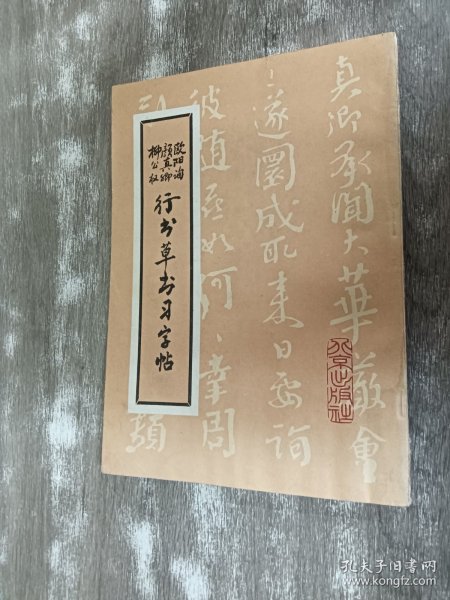 欧阳询
颜真卿
柳公权
行书草书习字帖
真卿承闻大華嚴會
遂圆成取来日要诣
彼随喜如何幸周
北京出版社
孔夫子旧书网
www.kongfz.com